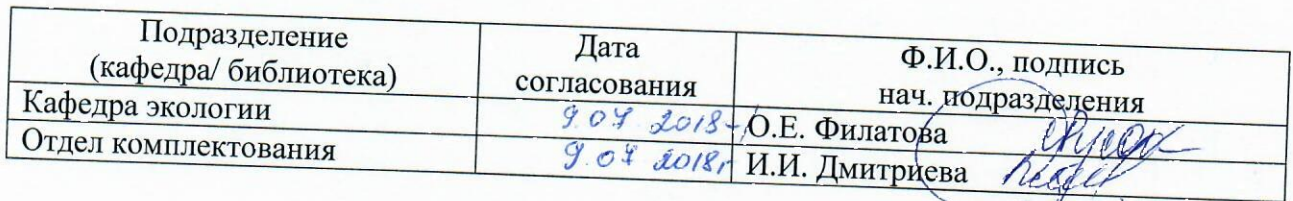 Подразделение
(кафедра/ библиотека)
Дата
согласования
Ф.И.О., подпись
нач. подразделения
Кафедра экологии 9.07 2018 О.Е. Филатова
Отдел комплектования 9.07 2018г И.И. Дмитриева